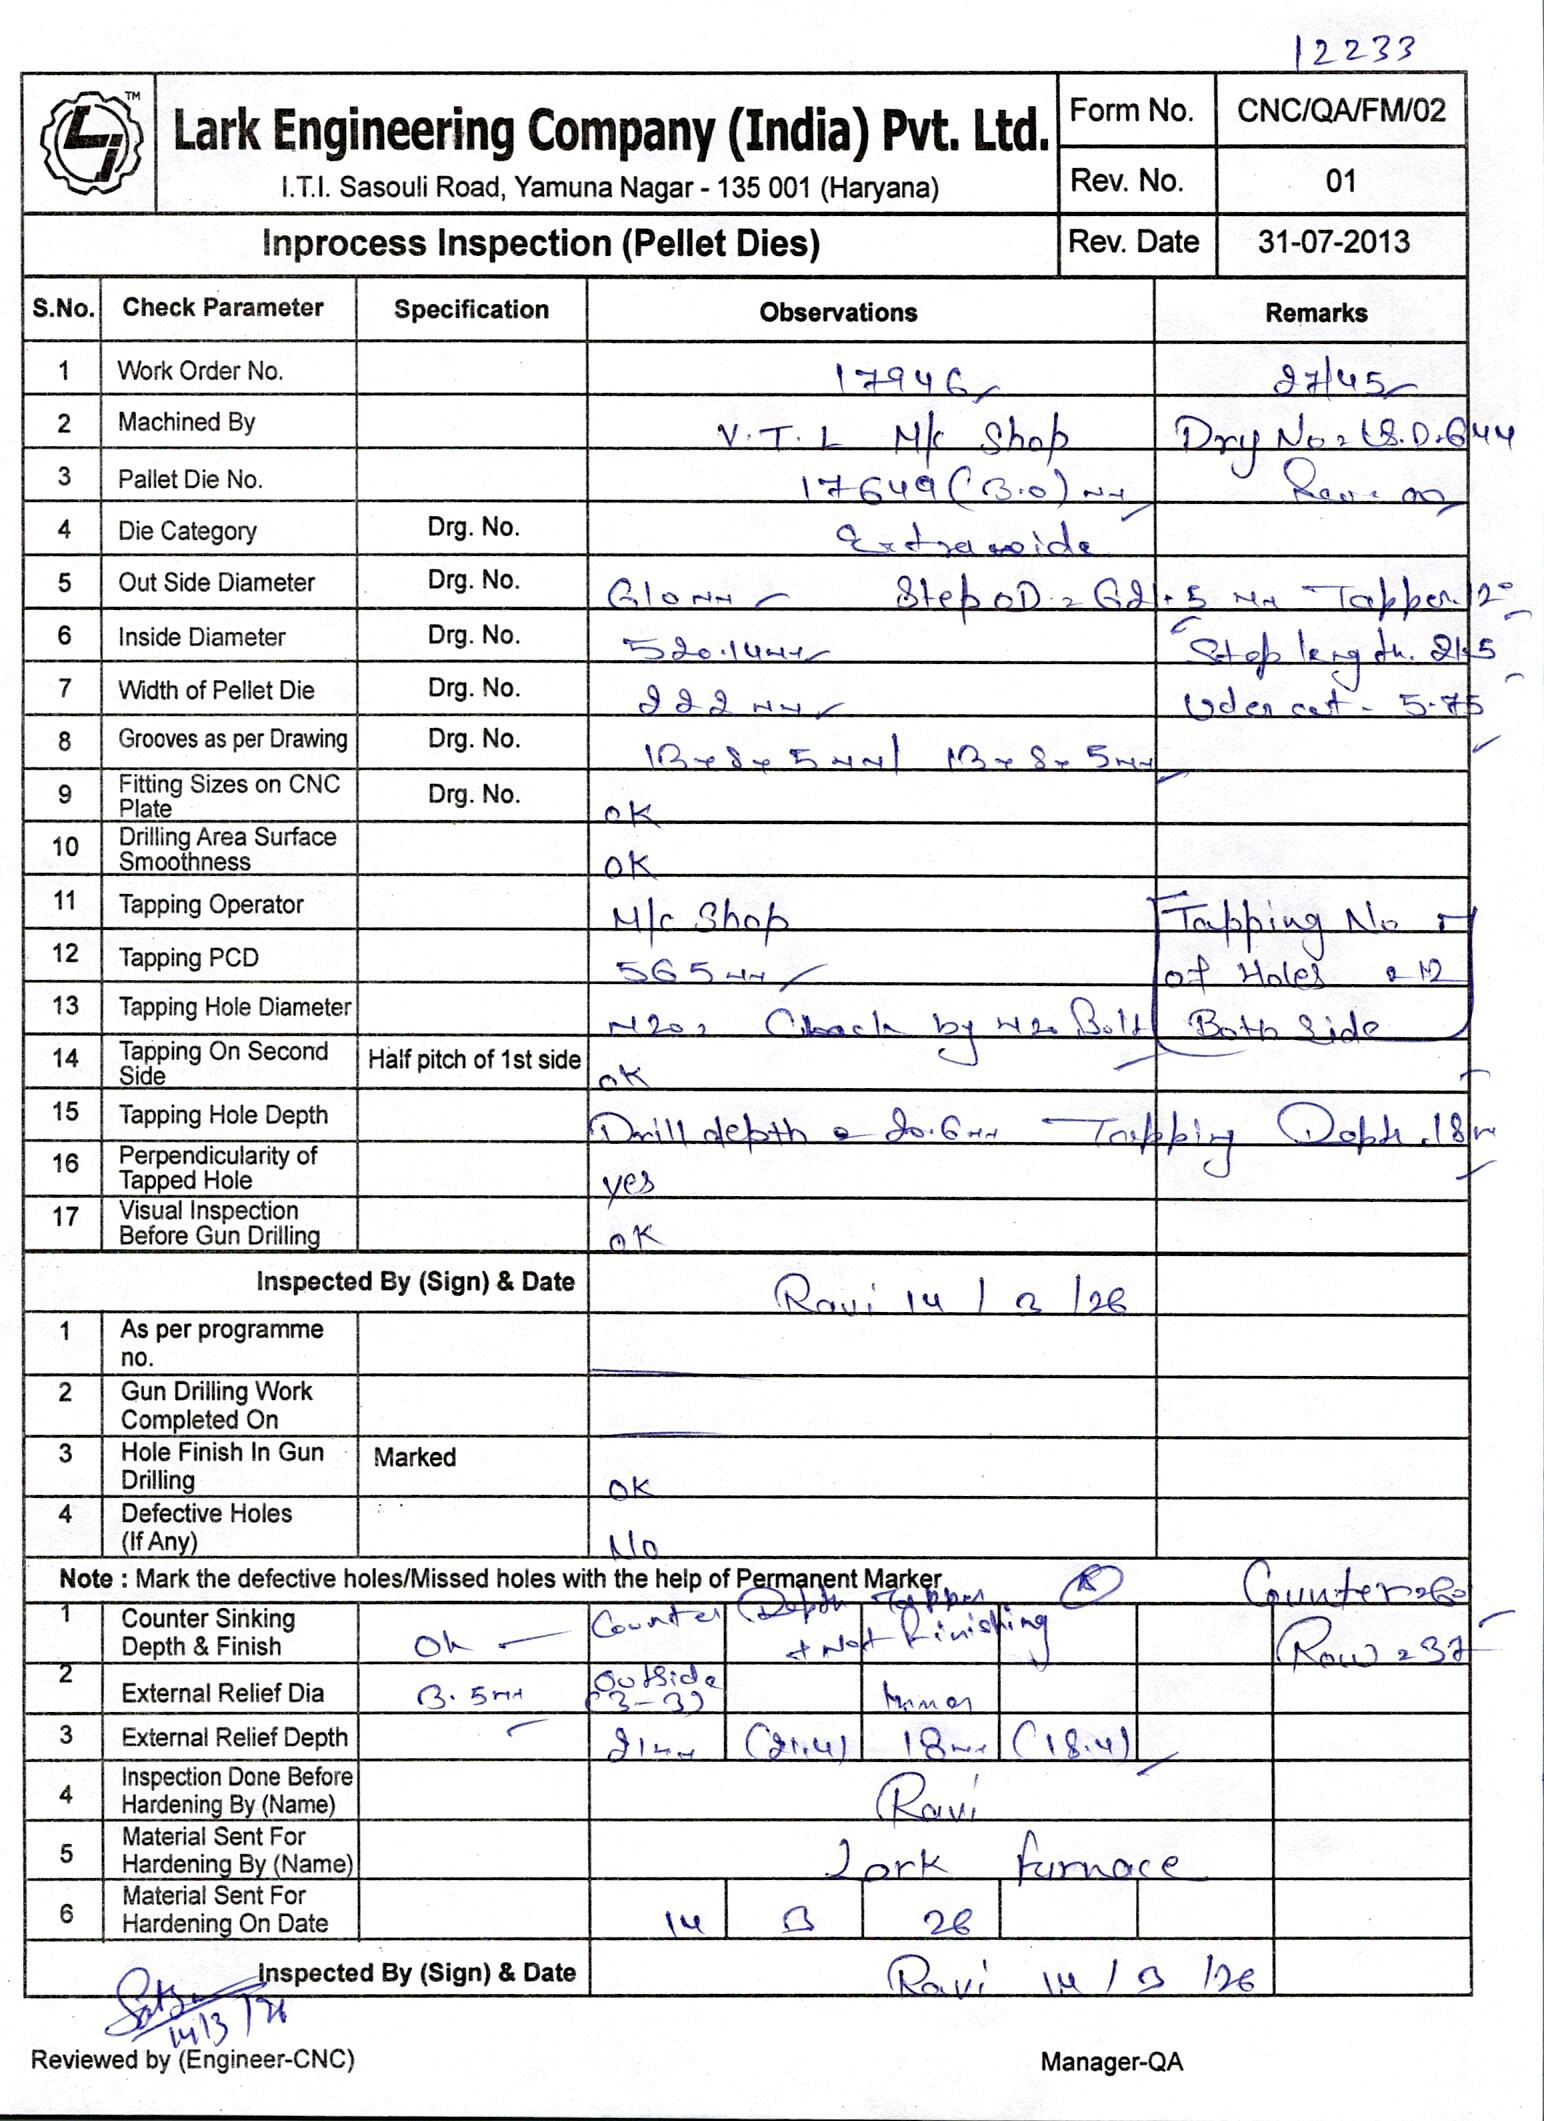 12233
TM
Lark Engineering Company (India) Pvt. Ltd.
I.T.I. Sasouli Road, Yamuna Nagar - 135 001 (Haryana)
Form No. CNC/QA/FM/02
Rev. No. 01
Inprocess Inspection (Pellet Dies)
Rev. Date 31-07-2013
S.No. Check Parameter Specification Observations Remarks
1 Work Order No. 17946 27/45
2 Machined By V.T.L M/c Shop
3 Pallet Die No. 17649 (3.0) mm
4 Die Category Drg. No. Extra wide
5 Out Side Diameter Drg. No. 610 mm Step OD = 621.5 mm Tapper 12°
6 Inside Diameter Drg. No. 520.14 mm Step length. 21.5
7 Width of Pellet Die Drg. No. 222 mm Uder cut - 5.75
8 Grooves as per Drawing Drg. No. 13 x 8 x 5 mm / 13 x 8 x 5 mm
9 Fitting Sizes on CNC Plate Drg. No. OK
10 Drilling Area Surface Smoothness OK
11 Tapping Operator M/c Shop Tapping No
12 Tapping PCD 565 mm of Holes = 12
13 Tapping Hole Diameter M20, Check by M20 Bolt Both Side
14 Tapping On Second Side Half pitch of 1st side OK
15 Tapping Hole Depth Drill depth = 20.6 mm Tapping Depth . 18 m
16 Perpendicularity of Tapped Hole yes
17 Visual Inspection Before Gun Drilling OK
Inspected By (Sign) & Date Ravi 14/3/26
1 As per programme no.
2 Gun Drilling Work Completed On
3 Hole Finish In Gun Drilling Marked OK
4 Defective Holes (If Any) No
Note : Mark the defective holes/Missed holes with the help of Permanent Marker Counter = 60
1 Counter Sinking Depth & Finish Ok Counter Depth Tapper + Not Finishing Row = 37
2 External Relief Dia 3.5 mm Outside (3-3)
3 External Relief Depth 21 mm (21.4) 18 mm (18.4)
4 Inspection Done Before Hardening By (Name) Ravi
5 Material Sent For Hardening By (Name) Lark furnace
6 Material Sent For Hardening On Date 14 3 26
Inspected By (Sign) & Date Ravi 14/3/26
14/3/26
Reviewed by (Engineer-CNC) Manager-QA